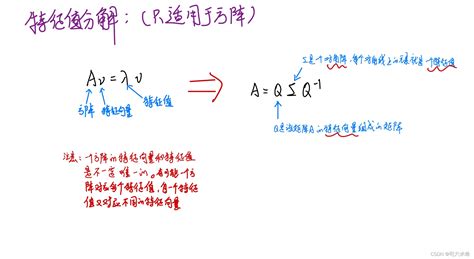 特征值分解：（只适用于方阵）
Σ是一个对角阵，每个对角线上的元素就是一个特征值
Aν=λν
A=QΣQ⁻¹
方阵 特征向量 特征值
Q是该矩阵A的特征向量组成的矩阵
注意：一个方阵的特征向量和特征值
是不一定唯一的。
阵对应多个特征值，每一个特征
值又对应不同的特征向量